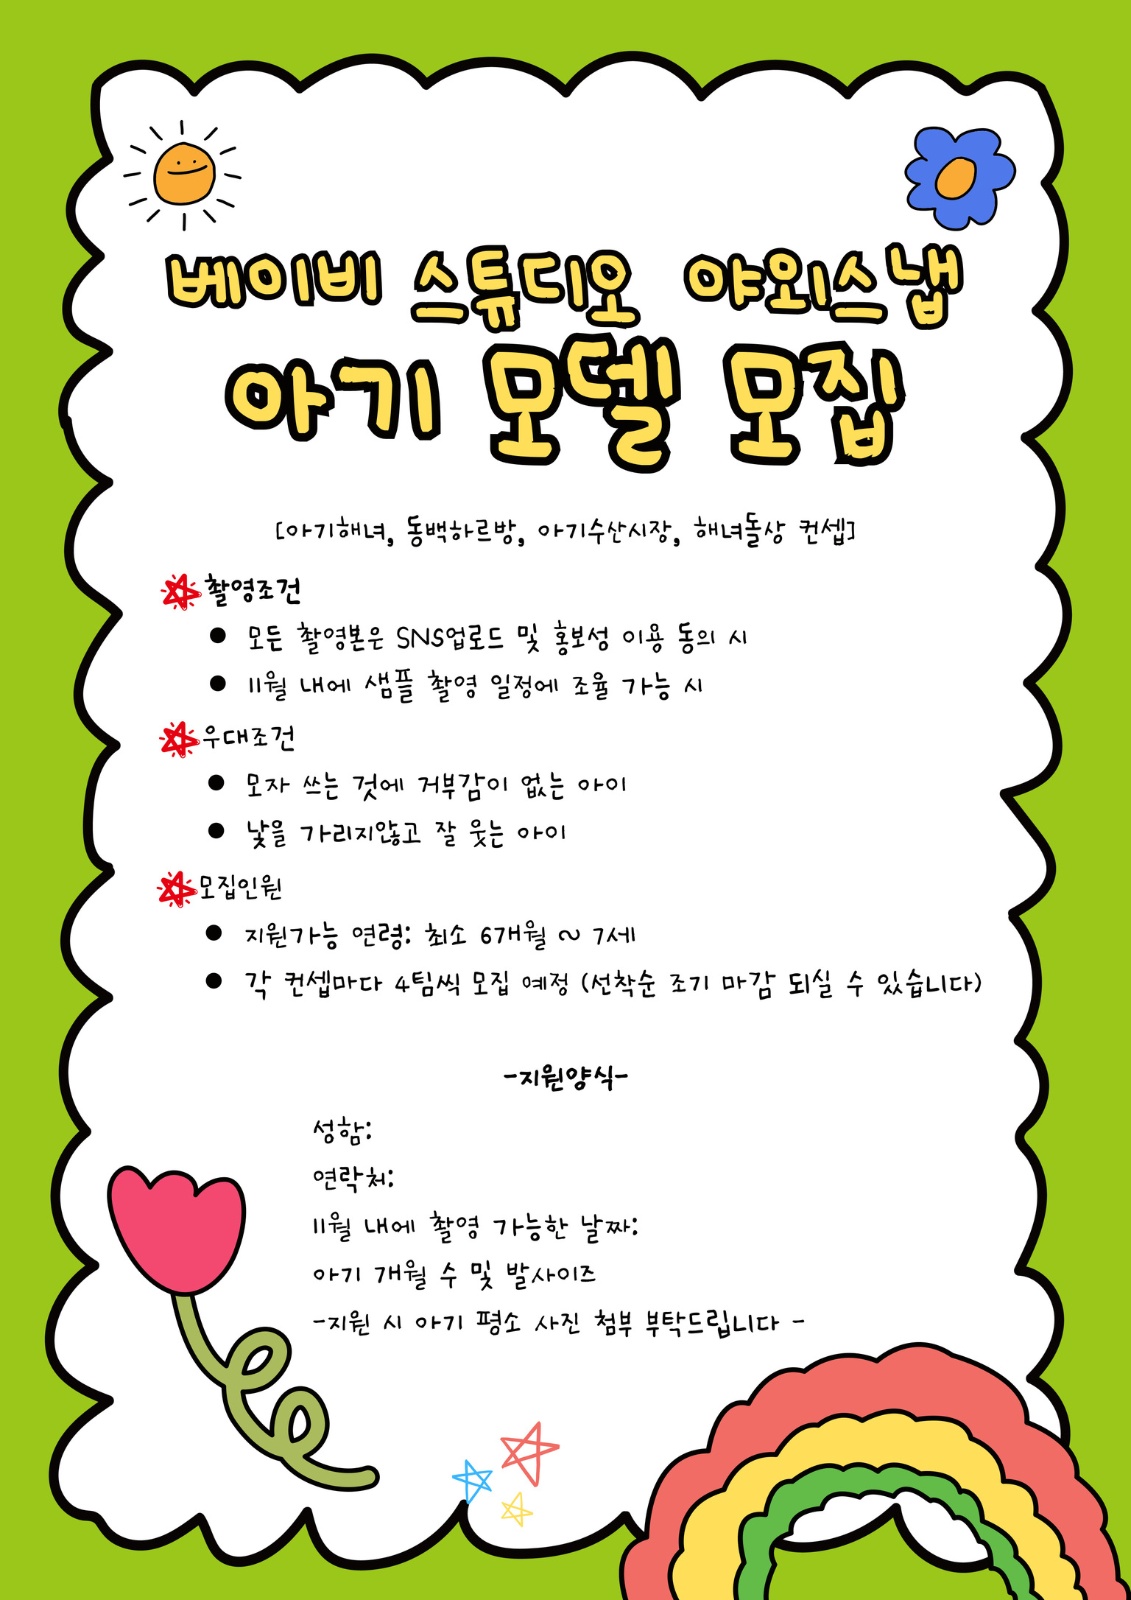 베이비 스튜디오 야외스냅
아기 모델 모집
[아기해녀, 동백하르방, 아기수산시장, 해녀돌상 컨셉]
촬영조건
● 모든 촬영본은 SNS업로드 및 홍보성 이용 동의 시
● 11월 내에 샘플 촬영 일정에 조율 가능 시
우대조건
● 모자 쓰는 것에 거부감이 없는 아이
● 낯을 가리지않고 잘 웃는 아이
모집인원
● 지원가능 연령: 최소 6개월 ~ 7세
● 각 컨셉마다 4팀씩 모집 예정 (선착순 조기 마감 되실 수 있습니다)
-지원양식-
성함:
연락처:
11월 내에 촬영 가능한 날짜:
아기 개월 수 및 발사이즈
-지원 시 아기 평소 사진 첨부 부탁드립니다 -